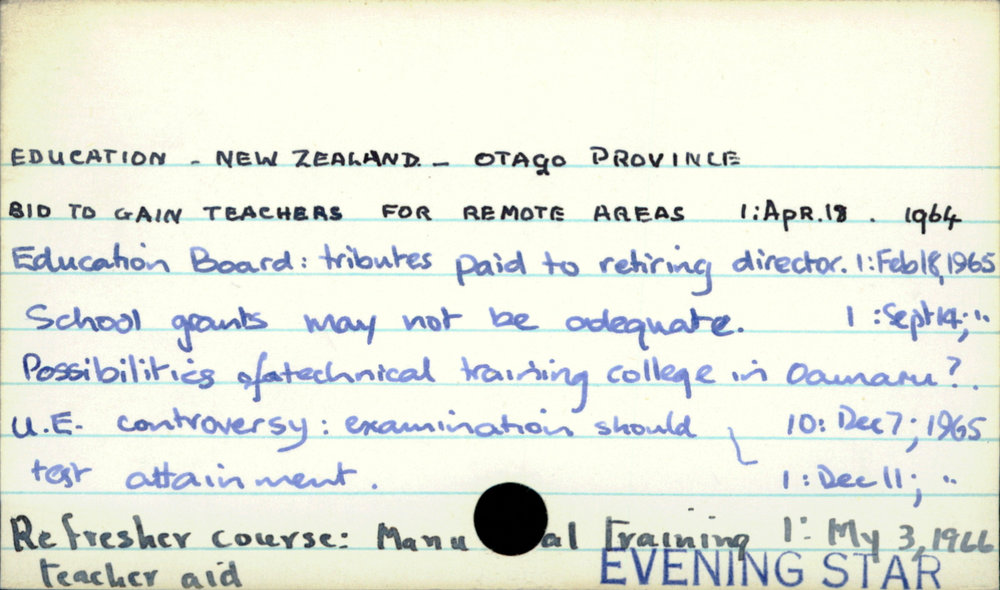 EDUCATION - NEW ZEALAND. - OTAGO PROVINCE
BID TO GAIN TEACHERS FOR REMOTE AREAS 1:APR.18. 1964
Education Board: tributes paid to retiring director. 1:Feb18,1965
School grants may not be adequate. 1:Sept14; "
Possibilities of a technical training college in Oamaru?.
U.E. controversy: examination should 10: Dec7; 1965
test attainment. 1: Dec 11; "
Refresher course: Manu al Training 1: My 3, 1966
teacher aid EVENING STAR